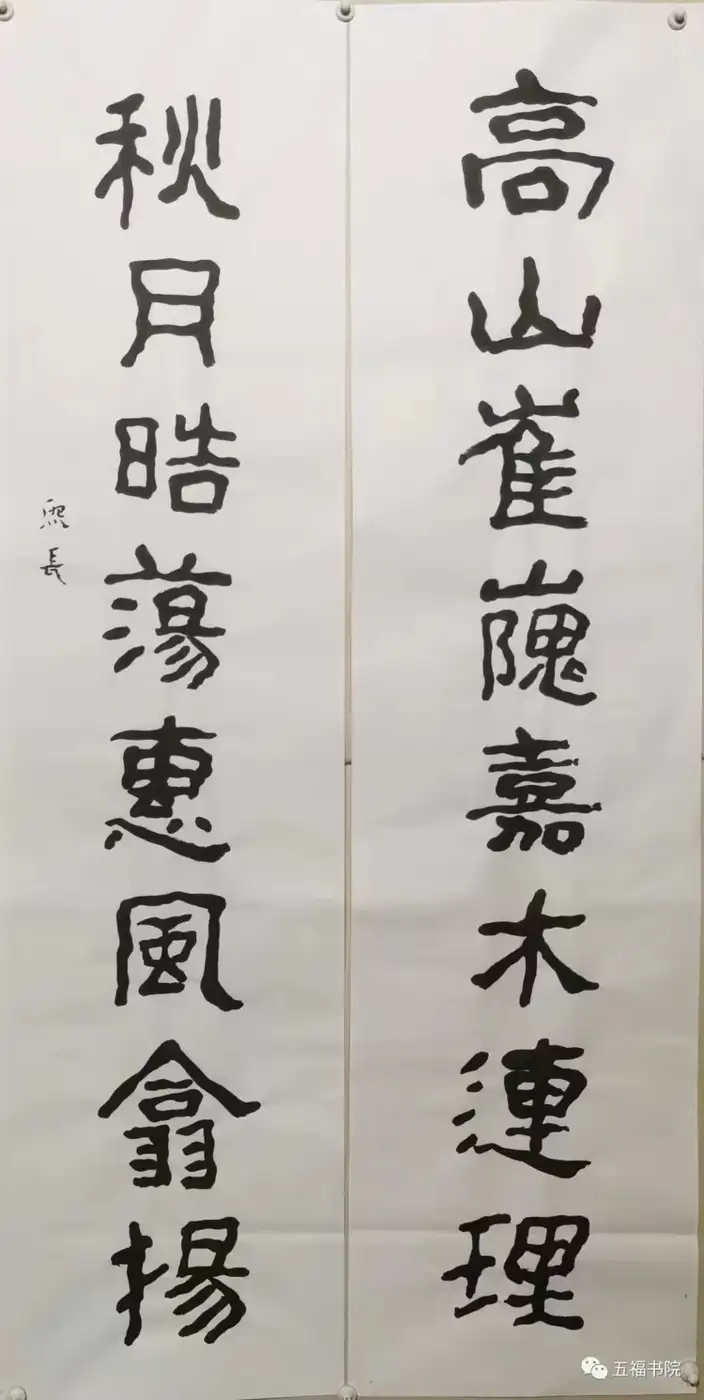 高山崔嵬嘉木連理
秋月晧蕩惠風翕揚
長
五福书院